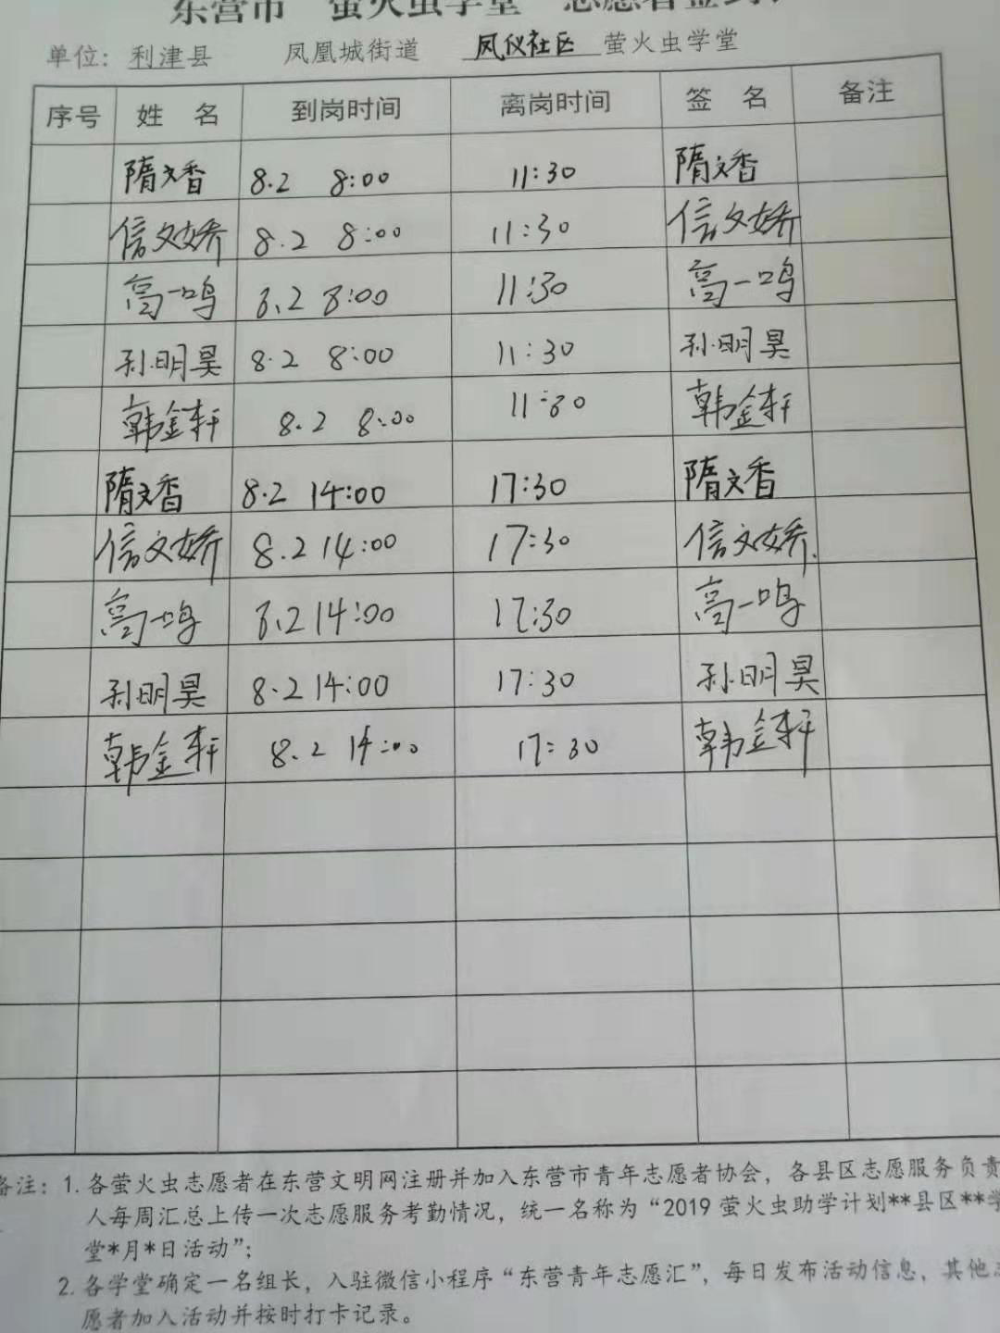 东营市“萤火虫学堂”志愿者签到
单位：利津县 凤凰城街道 凤仪社区 萤火虫学堂
序号 姓 名 到岗时间 离岗时间 签 名 备注
隋文香 8.2 8:00 11:30 隋文香
信文娇 8.2 8:00 11:30 信文娇
高一鸣 8.2 8:00 11:30 高一鸣
孙明昊 8.2 8:00 11:30 孙明昊
韩金轩 8.2 8:00 11:30 韩金轩
隋文香 8.2 14:00 17:30 隋文香
信文娇 8.2 14:00 17:30 信文娇.
高一鸣 8.2 14:00 17:30 高一鸣
孙明昊 8.2 14:00 17:30 孙明昊
韩金轩 8.2 14:00 17:30 韩金轩
备注：1. 各萤火虫志愿者在东营文明网注册并加入东营市青年志愿者协会，各县区志愿服务负责
人每周汇总上传一次志愿服务考勤情况，统一名称为“2019 萤火虫助学计划**县区**学
堂*月*日活动”；
2. 各学堂确定一名组长，入驻微信小程序“东营青年志愿汇”，每日发布活动信息，其他志
愿者加入活动并按时打卡记录。